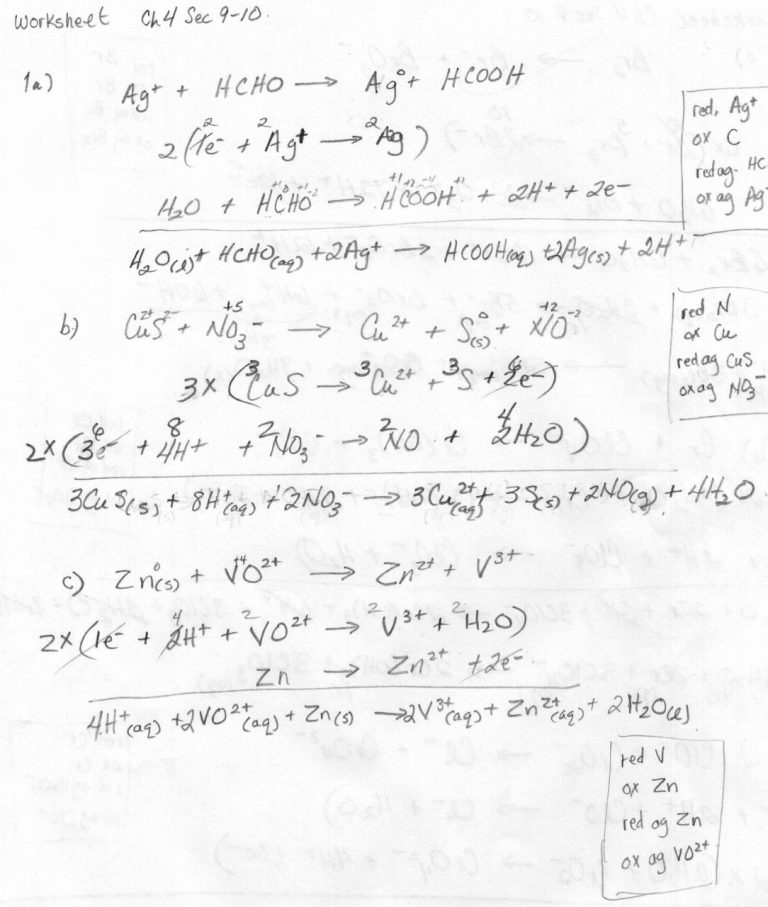 Worksheet Ch4 Sec 9-10.
1a) Ag⁺ + HCHO → Ag⁰ + HCOOH
2(1e⁻ + Ag⁺ → Ag)
H₂O + HCHO → HCOOH + 2H⁺ + 2e⁻
H₂O(l) + HCHO(aq) + 2Ag⁺ → HCOOH(aq) + 2Ag(s) + 2H⁺
red, Ag⁺
ox C
red ag. HC
ox ag Ag⁺
b) CuS + NO₃⁻ → Cu²⁺ + S(s) + NO
3 x (CuS → Cu²⁺ + S + 2e⁻)
2 x (3e⁻ + 4H⁺ + NO₃⁻ → NO + 2H₂O)
3CuS(s) + 8H⁺(aq) + 2NO₃⁻ → 3Cu²⁺(aq) + 3S(s) + 2NO(g) + 4H₂O
red N
ox Cu
red ag CuS
ox ag NO₃⁻
c) Zn⁰(s) + VO²⁺ → Zn²⁺ + V³⁺
2 x (1e⁻ + 2H⁺ + VO²⁺ → V³⁺ + H₂O)
Zn → Zn²⁺ + 2e⁻
4H⁺(aq) + 2VO²⁺(aq) + Zn(s) → 2V³⁺(aq) + Zn²⁺(aq) + 2H₂O(l)
red V
ox Zn
red ag Zn
ox ag VO²⁺